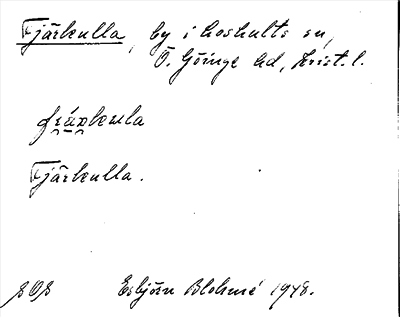 Fjärkulla, by i Loshults sn,
Ö. Göinge hd, Krist. l.
Fjärkulla.
Esbjörn Blohmé 1948.